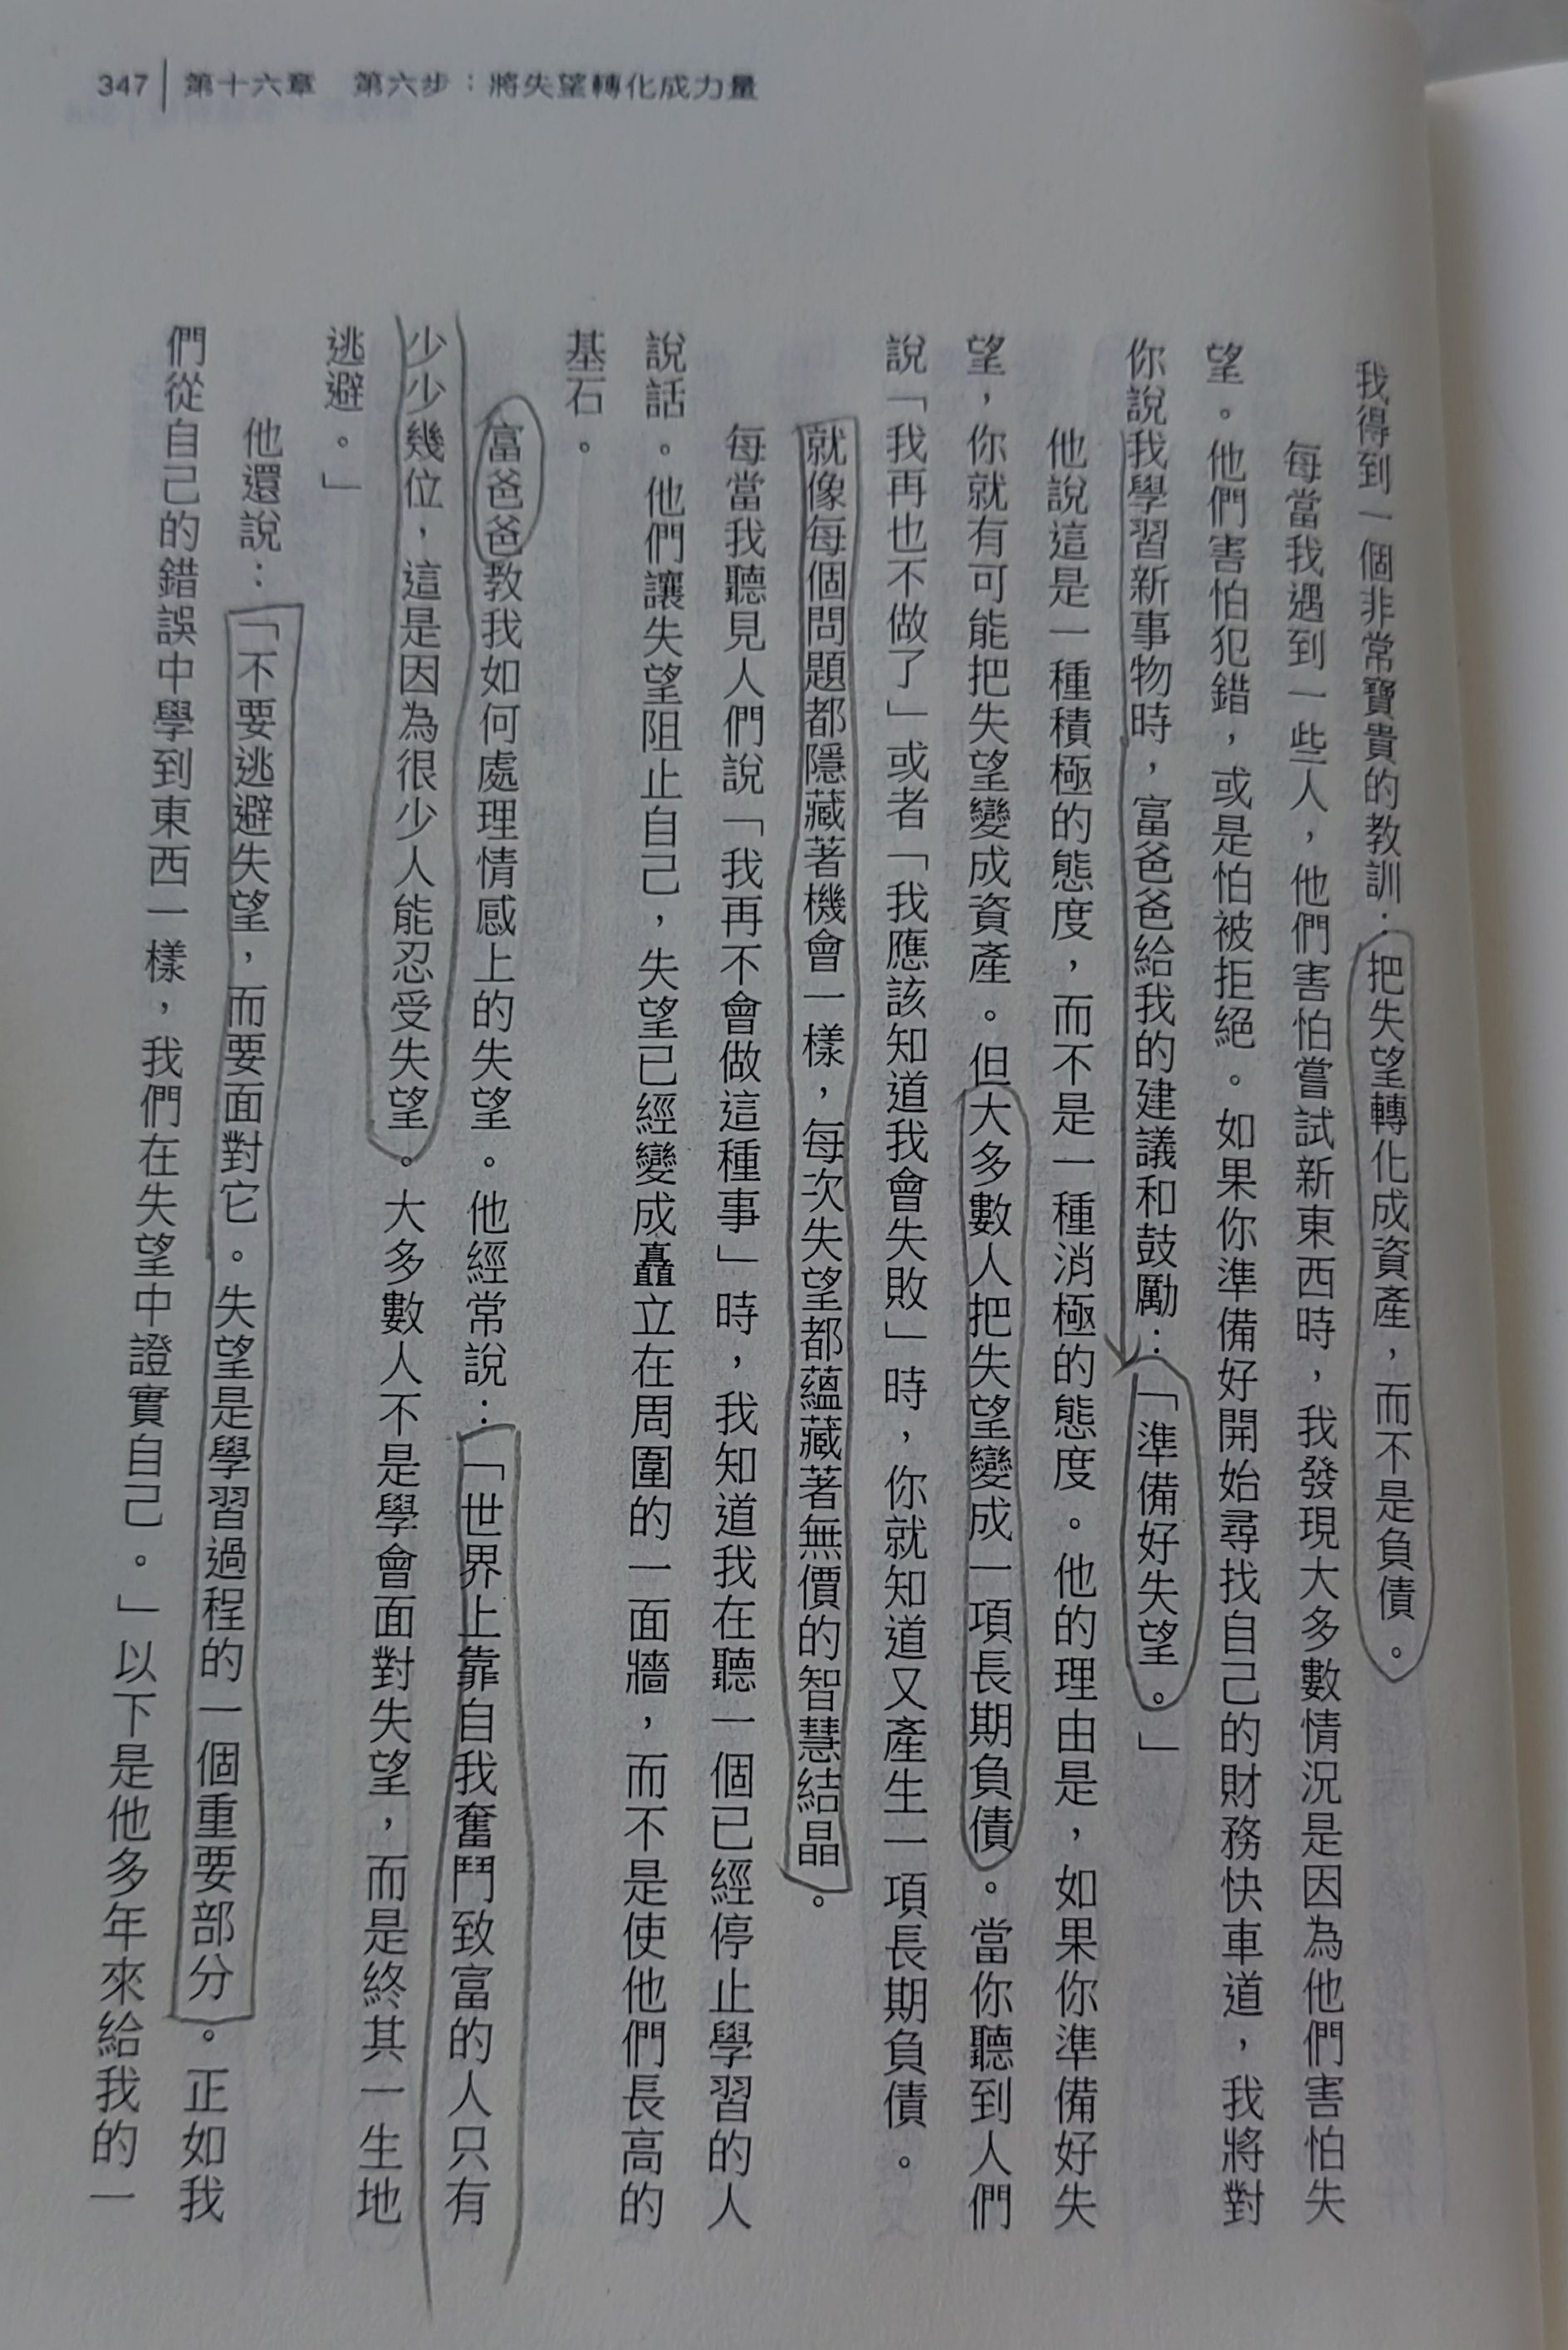 347 第十六章　第六步：將失望轉化成力量
我得到一個非常寶貴的教訓：把失望轉化成資產，而不是負債。
每當我遇到一些人，他們害怕嘗試新東西時，我發現大多數情況是因為他們害怕失
望。他們害怕犯錯，或是怕被拒絕。如果你準備好開始尋找自己的財務快車道，我將對
你說我學習新事物時，富爸爸給我的建議和鼓勵：「準備好失望。」
他說這是一種積極的態度，而不是一種消極的態度。他的理由是，如果你準備好失
望，你就有可能把失望變成資產。但大多數人把失望變成一項長期負債。當你聽到人們
說「我再也不做了」或者「我應該知道我會失敗」時，你就知道又產生一項長期負債。
就像每個問題都隱藏著機會一樣，每次失望都蘊藏著無價的智慧結晶。
每當我聽見人們說「我再不會做這種事」時，我知道我在聽一個已經停止學習的人
說話。他們讓失望阻止自己，失望已經變成矗立在周圍的一面牆，而不是使他們長高的
基石。
富爸爸教我如何處理情感上的失望。他經常說：「世界上靠自我奮鬥致富的人只有
少少幾位，這是因為很少人能忍受失望。大多數人不是學會面對失望，而是終其一生地
逃避。」
他還說：「不要逃避失望，而要面對它。失望是學習過程的一個重要部分。正如我
們從自己的錯誤中學到東西一樣，我們在失望中證實自己。」以下是他多年來給我的一